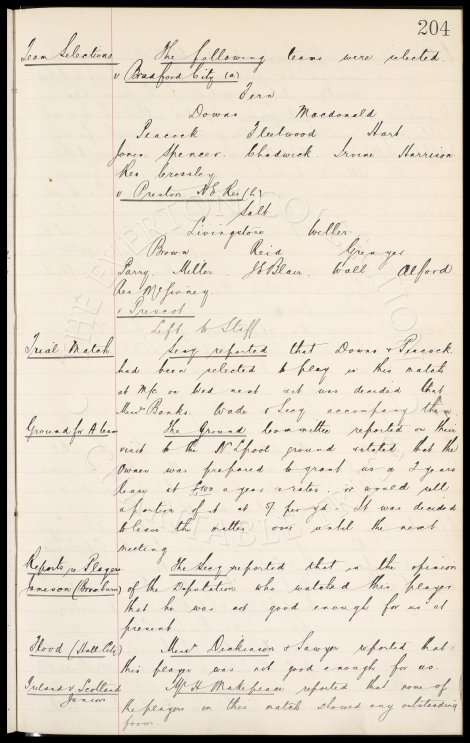 204
Team Selections The following teams were selected
v Bradford City (a)
Fern
Downs Macdonald
Peacock Fleetwood Hart
Jones. Spencer. Chadwick. Irvine Harrison
Res Crossley
v Preston N E Res (h)
Salt
Livingstone Weller
Brown Reid Grenyer
Parry. Miller. J Blair. Wall Alford
Res McGivney
v Prescot
Left to Staff.
Trial Match Secy reported that Downs & Peacock
had been selected to play in this match
at M/c on Wed next & it was decided that
Messrs Banks Wade & Secy accompany them
Ground for A team The Ground Committee reported on their
visit to the N Lpool ground & stated that the
owner was prepared to grant us a 3 years
lease at £100 a year & rates or would sell
a portion of it at 5/- per yd. It was decided
to leave the matter over until the next
meeting
Reports re Players The Secy reported that in the opinion
Jamieson (Broxburn) of the Deputation who watched this player
that he was not good enough for us at
present
Flood (Hull City) Messrs Dickinson & Sawyer reported that
this player was not good enough for us.
Ireland v Scotland Mr H Makepeace reported that none of
Junior the players in this match showed any outstanding
form.
THE EVERTON COLLECTION CHARITABLE TRUST